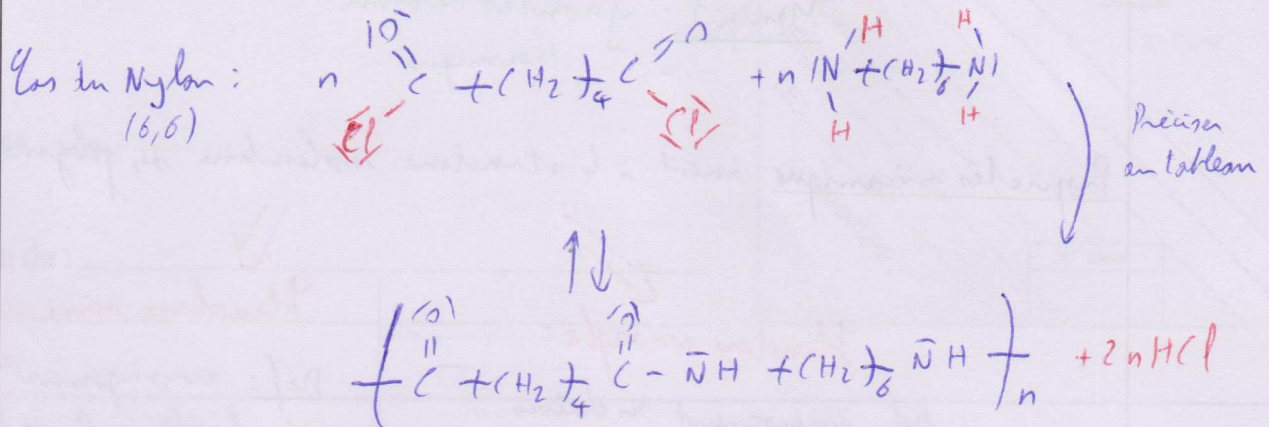 Cas du Nylon :
(6,6)
n Cl-C(=O)-(CH2)4-C(=O)-Cl + n H2N-(CH2)6-NH2
Préciser
au tableau
⇅
-[C(=O)-(CH2)4-C(=O)-NH-(CH2)6-NH]-n + 2nHCl